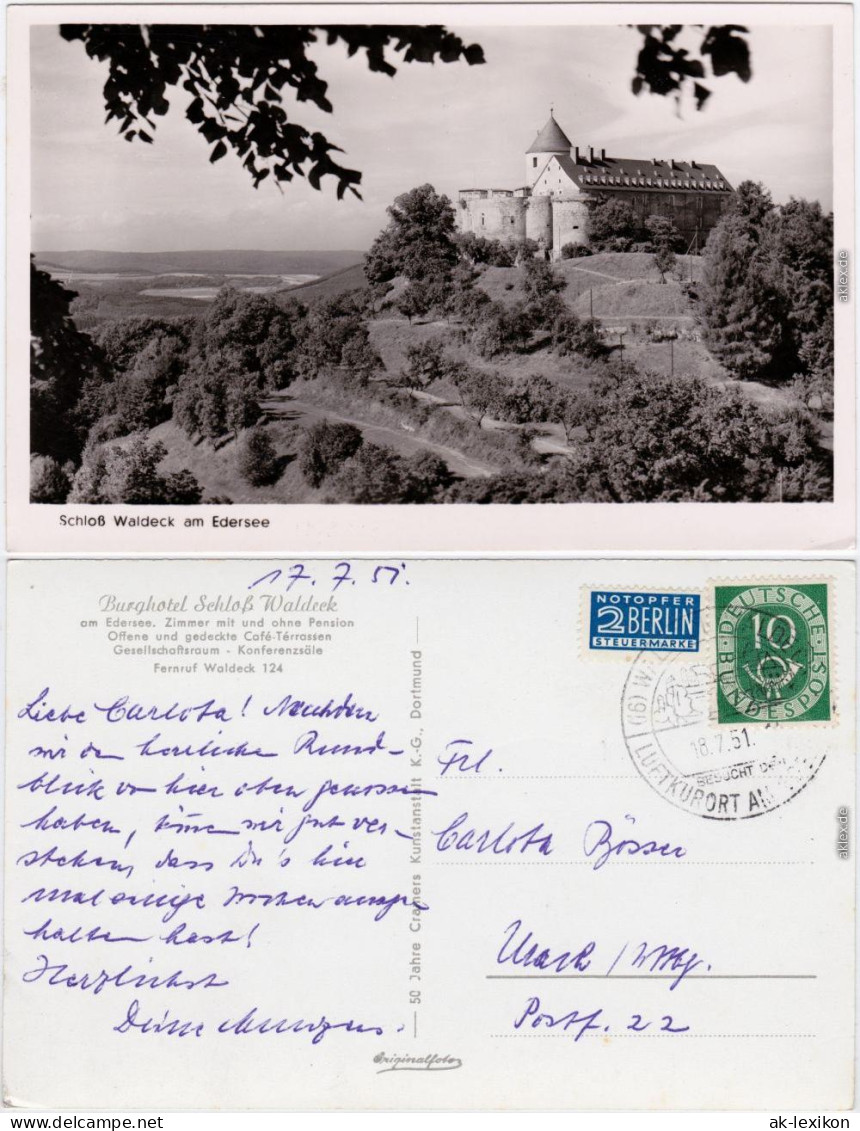 Schloß Waldeck am Edersee
17. 7. 51.
Burghotel Schloß Waldeck
am Edersee. Zimmer mit und ohne Pension
Offene und gedeckte Café-Térrassen
Gesellschaftsraum - Konferenzsäle
Fernruf Waldeck 124
Liebe Carlota! Nachdem
wir den herrlichen Rund-
blick von hier oben genossen
haben, können wir gut ver-
stehen, dass Du's hier
mal einige Wochen ausge-
halten hast!
Herzlichst
Deine
50 Jahre Cramers Kunstanstalt K.-G., Dortmund
Originalfoto
NOTOPFER
2 BERLIN
STEUERMARKE
DEUTSCHE
BUNDESPOST
10
(16)
18.7.51.
BESUCHT DEN
LUFTKURORT AM
Frl.
Carlota Bösser
Urach / Wttbg.
Postf. 22
aklex.de
aklex.de
www.ak-ansichtskarten.de
ak-lexikon